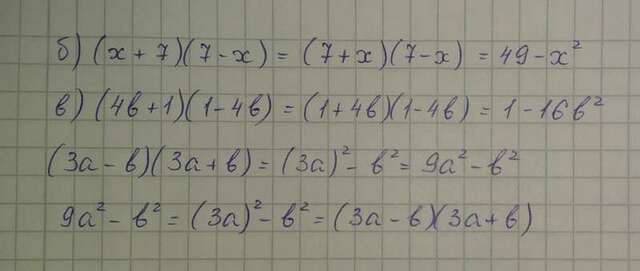 б) (x + 7)(7 - x) = (7 + x)(7 - x) = 49 - x²
в) (4в + 1)(1 - 4в) = (1 + 4в)(1 - 4в) = 1 - 16в²
(3a - в)(3a + в) = (3a)² - в² = 9a² - в²
9a² - в² = (3a)² - в² = (3a - в)(3a + в)